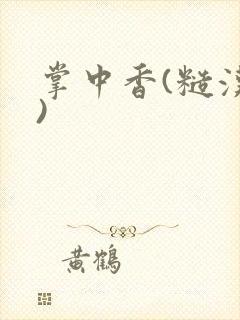 掌中香(糙
)
黄鹤